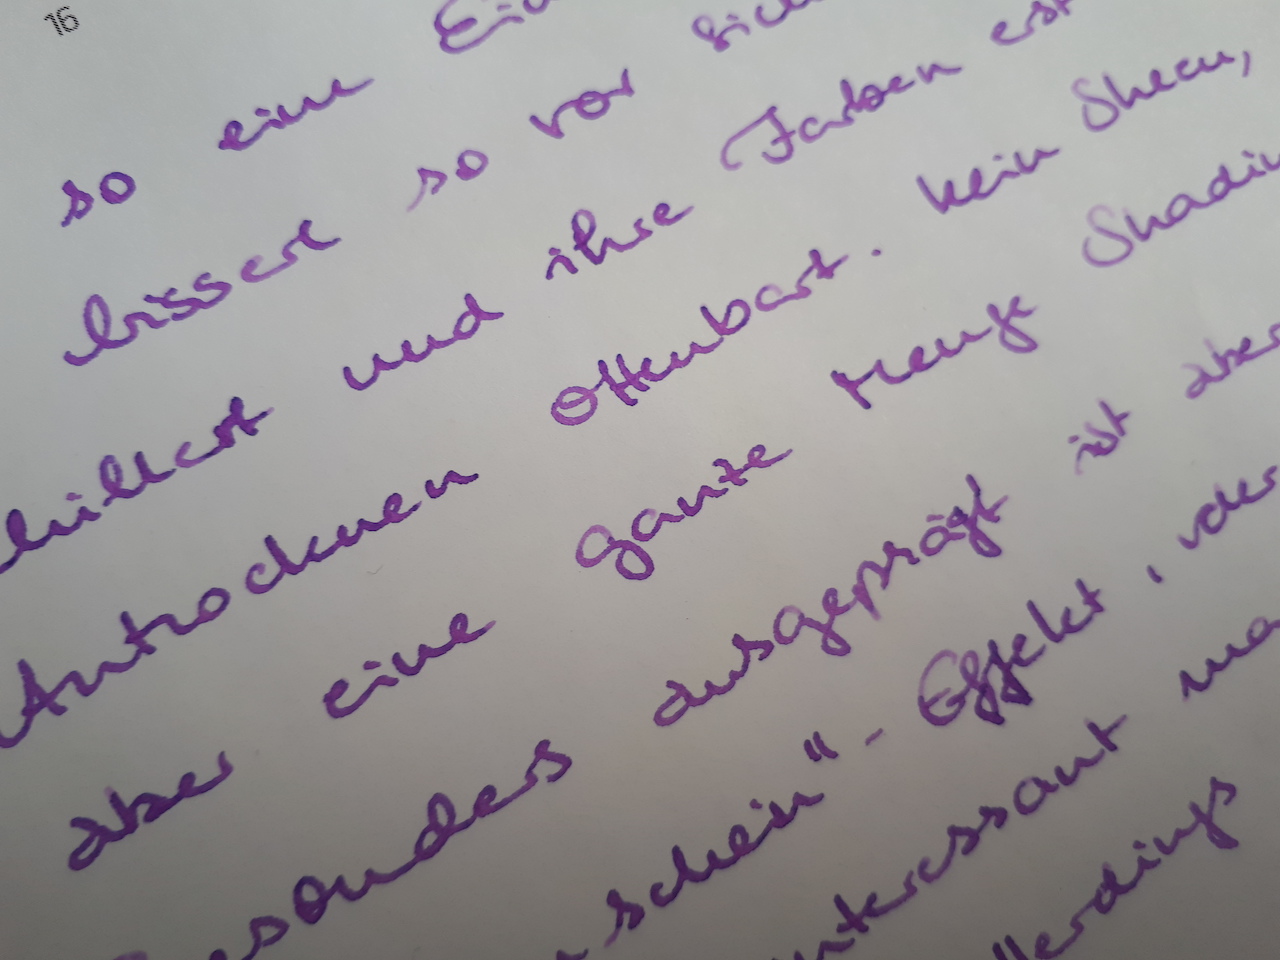 16
so eine
bisserl so vor
und ihre Farben erst
Antrocknen offenbart. Kein Sheen,
aber eine ganze Menge Shadin
besonders ausgeprägt ist aber
schein"-Effekt, der
interessant ma
llerdings